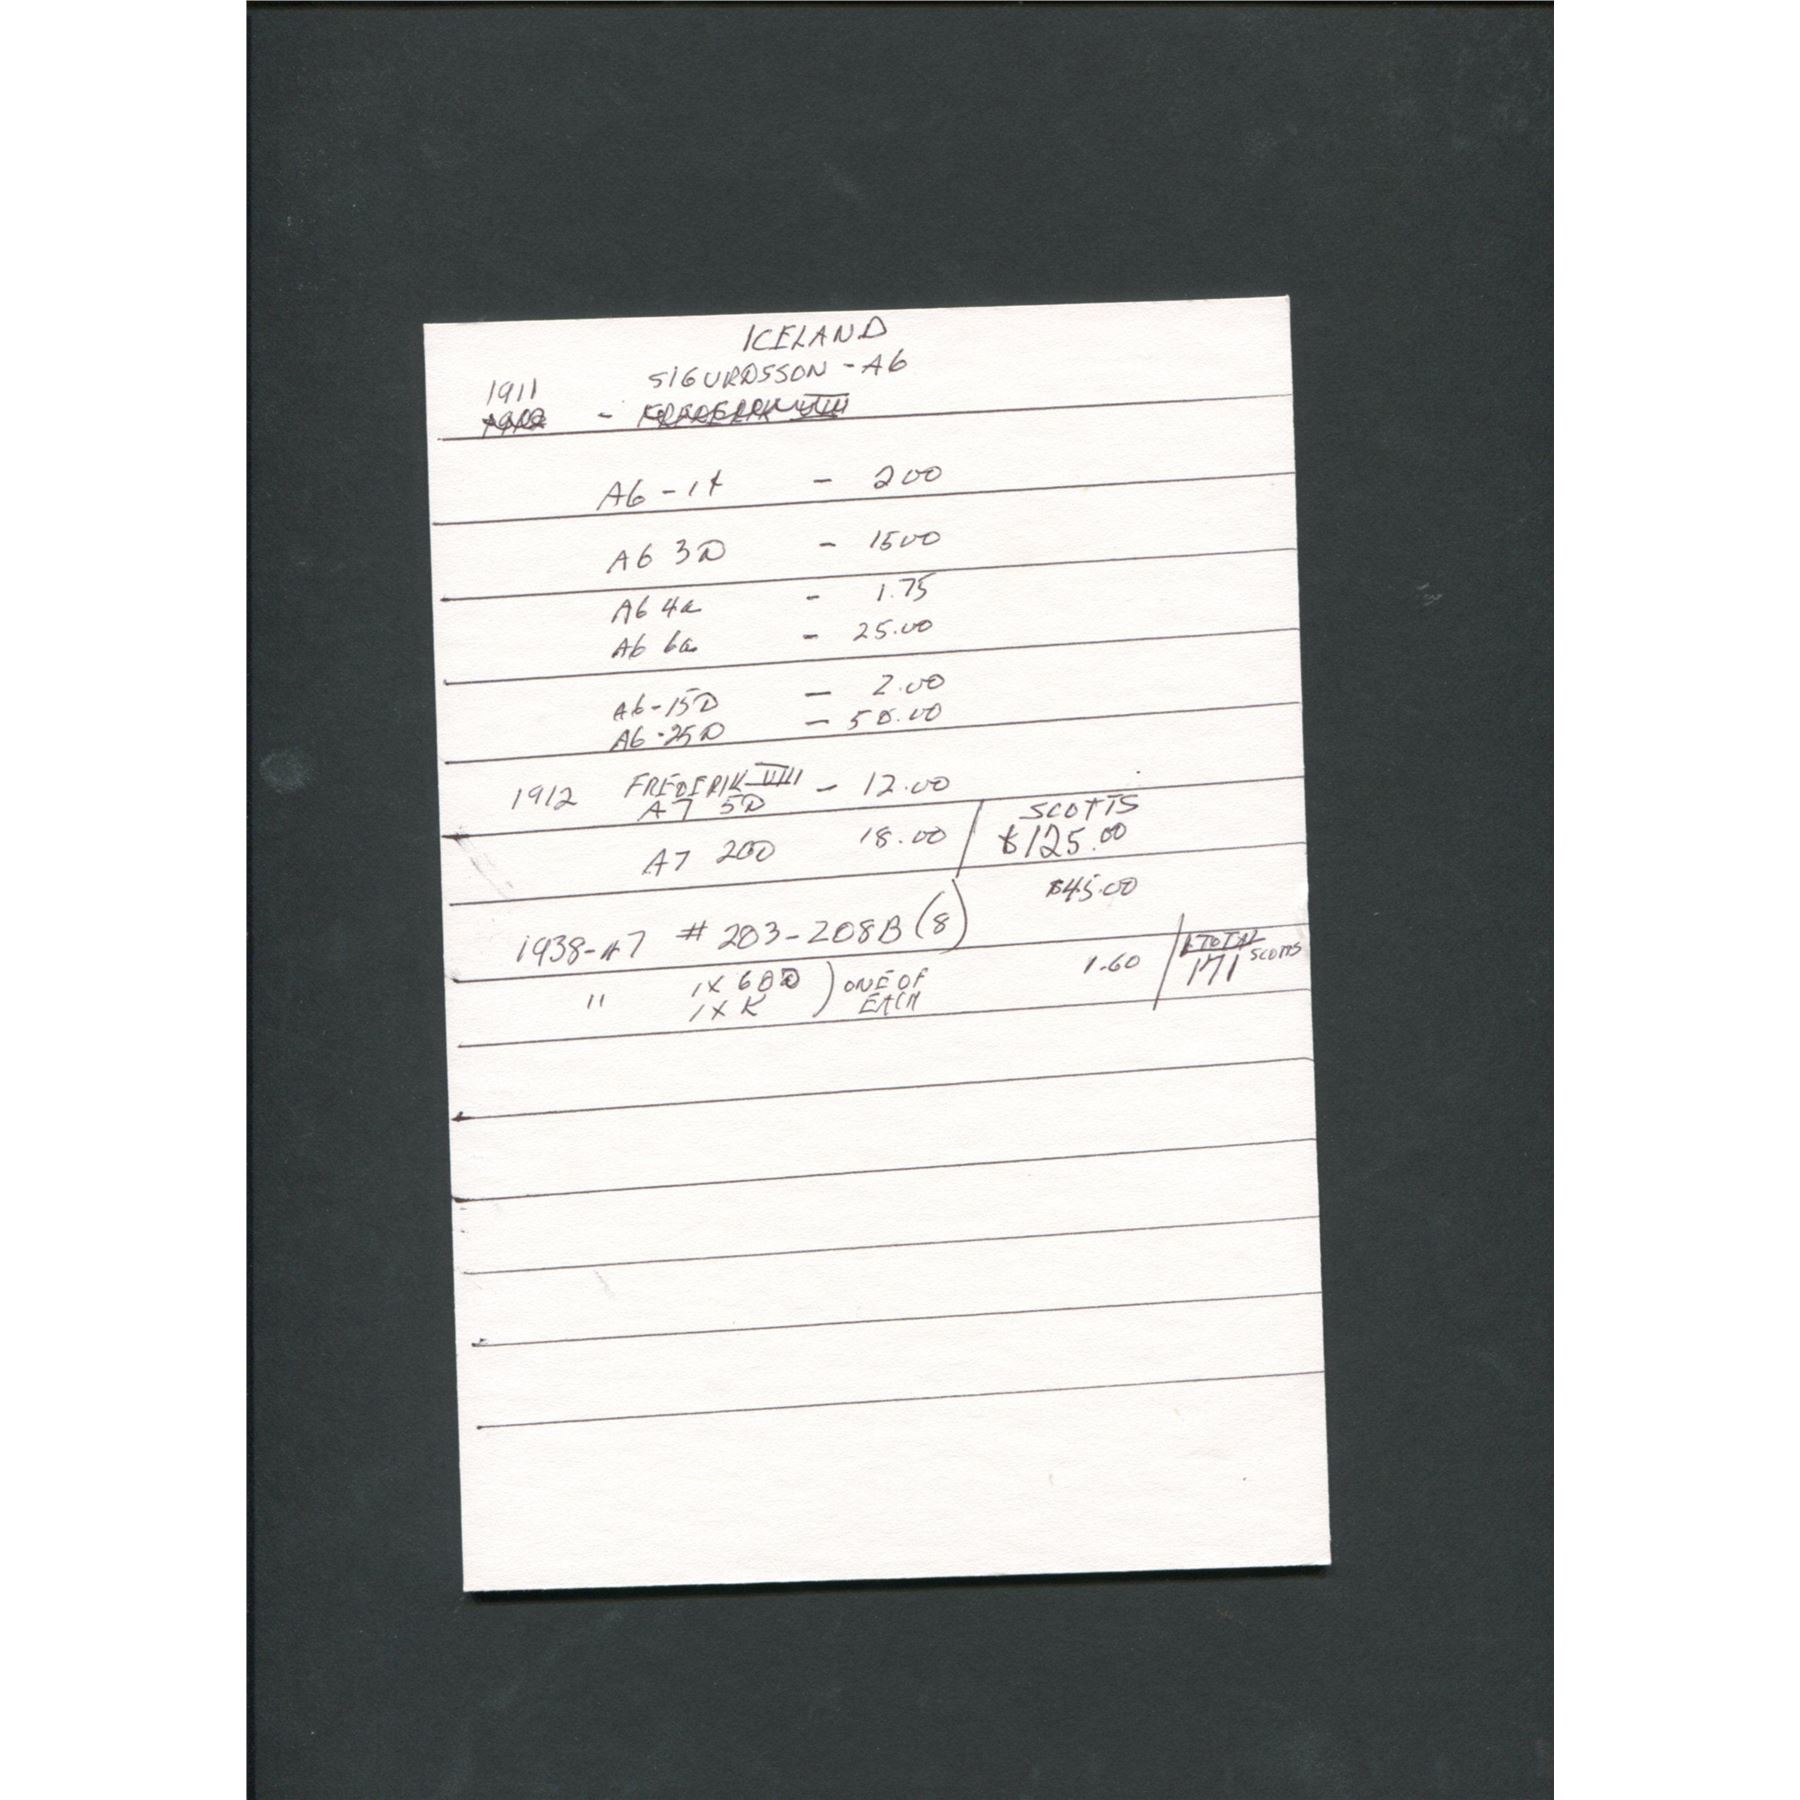 ICELAND
1911 SIGURDSSON - A6
1912 - FREDERIK VIII
A6 - 1 - 200
A6 3D - 1500
A6 4a - 1.75
A6 6a - 25.00
A6 - 15D - 2.00
A6 - 25D - 50.00
1912 FREDERIK VIII - 12.00
A7 5D
SCOTTS
A7 20D 18.00 / $125.00
$45.00
1938-A7 # 203-208B (8)
" 1 X 60D ) ONE OF 1.60 / TOTAL
1 X K EACH 171 SCOTTS